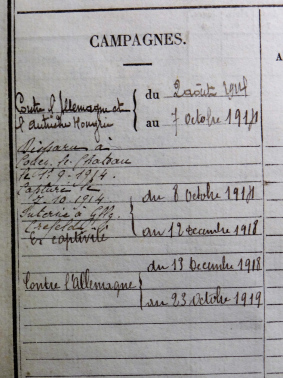 CAMPAGNES.
Contre l'Allemagne et
l'Autriche Hongrie
du 2 août 1914
au 7 Octobre 1914
Disparu à
le 1.9.1914.
Capturé le
7.10.1914
Interné à
Crefeld
En captivité
du 8 Octobre 1914
au 12 Décembre 1918
Contre l'Allemagne
du 13 Décembre 1918
au 23 Octobre 1919
A